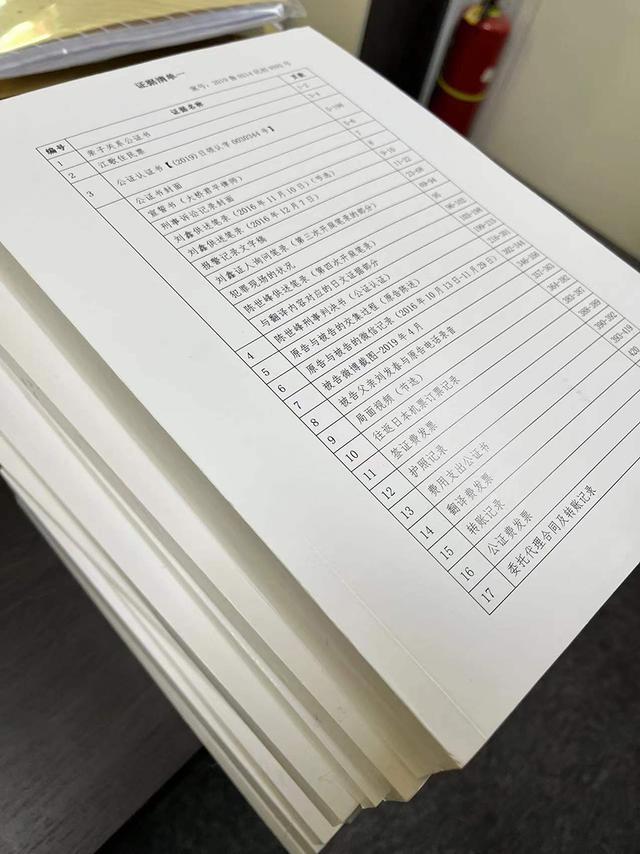 证据清单一
编号 证据名称 页数
1 亲子关系公证书 1-2
2 江歌住民票 3-4
3 公证认证书【(2019)日领认字0030344号】 5-198
公证书封面 5-6
宣誓书（大桥君平律师） 7
刑事诉讼记录封面 8
刘鑫供述笔录（2016年11月10日）（节选） 9-10
刘鑫供述笔录（2016年12月7日） 11-22
报警记录文字稿
刘鑫证人询问笔录（第三次开庭笔录的部分）
犯罪现场的状况
陈世峰供述笔录（第四次开庭笔录）
与翻译内容对应的日文证据部分
4 陈世峰刑事判决书（公证认证）
5 原告与被告的交集过程（原告陈述）
6 原告与被告的微信记录（2016年10月13日-11月29日）
7 被告微博截图-2019年4月
8 被告父亲刘发春与原告电话录音
9 局面视频（节选）
10 往返日本机票订票记录
11 签证费发票
12 护照记录
13 费用支出公证书
14 翻译费发票
15 转账记录
16 公证费发票
17 委托代理合同及转账记录
420